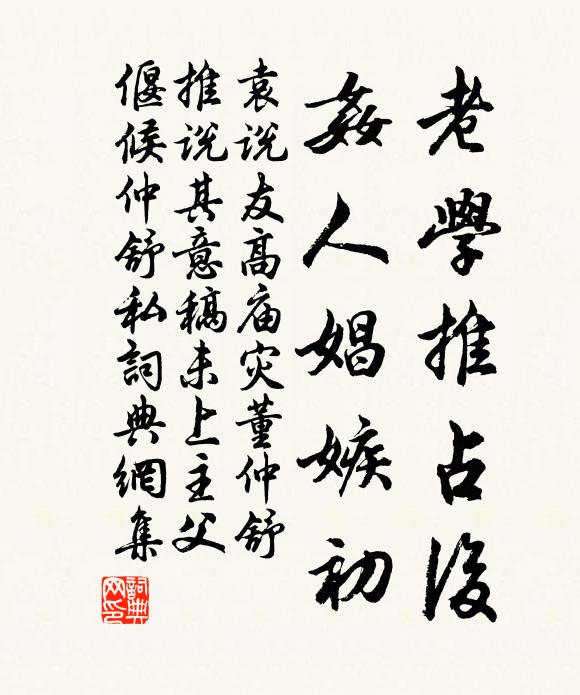 老學推占後
姦人娼嫉初
袁说友高庙灾董仲舒
推说其意稿未上主父
偃候仲舒私詞典網集
詞典網印